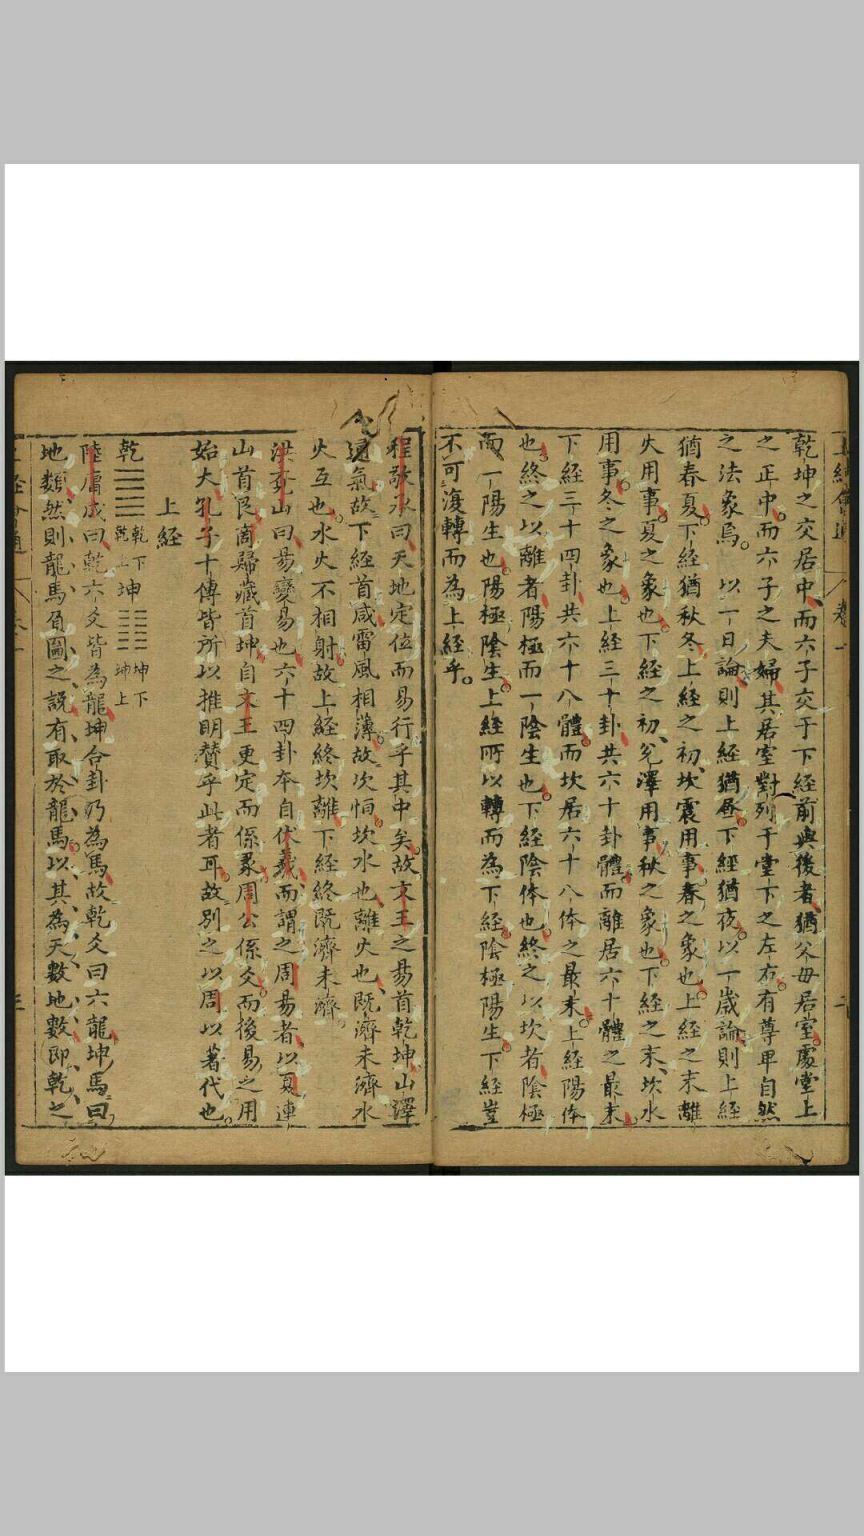 乾坤之交居中而六子交于下經前與後者猶父母居室處堂上
之正中而六子之夫婦其居室對列于堂下之左右有尊卑自然
之法象焉 以一日論則上經猶昼下經猶夜以一歲論則上經
猶春夏下經猶秋冬上經之初坎震用事春之象也上經之末離
火用事夏之象也下經之初兌澤用事秋之象也下經之末坎水
用事冬之象也上經三十卦共六十卦體而離居六十體之最末
下經三十四卦共六十八體而坎居六十八体之最末上經陽体
也終之以離者陽極而一陰生也下經陰体也終之以坎者陰極
而一陽生也陽極陰生上經所以轉而為下經陰極陽生下經豈
不可復轉而為上經乎
程敬承曰天地定位而易行乎其中矣故文王之易首乾坤山澤
通氣故下經首咸雷風相薄故次恒坎水也離火也既濟未濟水
火互也水火不相射故上經終坎離下經終既濟未濟
洪莽山曰易變易也六十四卦本自伏羲而謂之周易者以夏連
山首艮商歸藏首坤自文王更定而係彖周公係爻而後易之用
始大孔子十傳皆所以推明贊乎此者耳故別之以周以著代也
上經
乾 乾下 乾上 坤 坤下 坤上
陸庸成曰乾六爻皆為龍坤合卦乃為馬故乾爻曰六龍坤馬曰
地類然則龍馬負圖之說有取於龍馬以其為天數地數即乾之